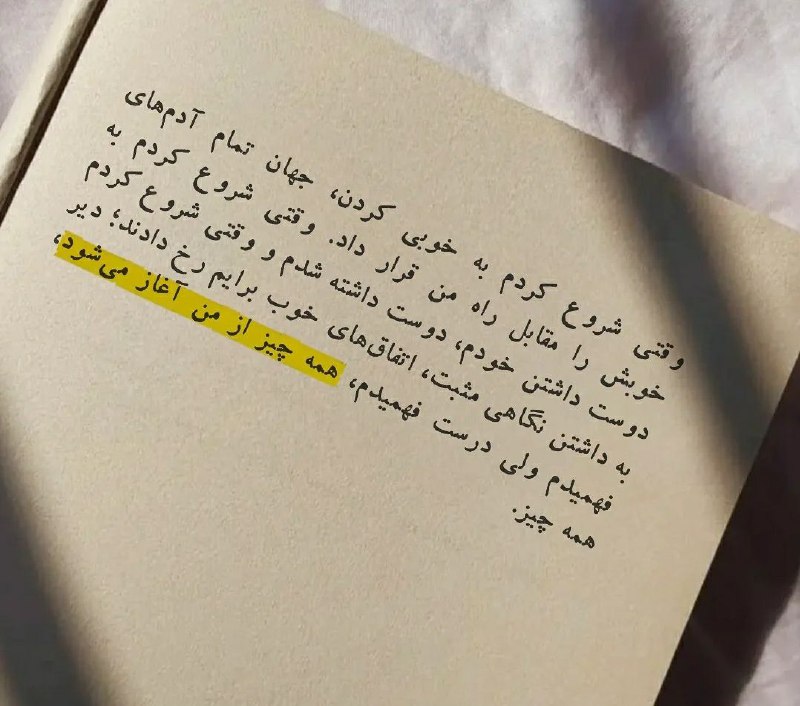 وقتی شروع کردم به خوبی کردن، جهان تمام آدم‌های
خوبش را مقابل راه من قرار داد. وقتی شروع کردم به
دوست داشتن خودم، دوست داشته شدم و وقتی شروع کردم
به داشتن نگاهی مثبت، اتفاق‌های خوب برایم رخ دادند؛ دیر
فهمیدم ولی درست فهمیدم، همه چیز از من آغاز می‌شود،
همه چیز.